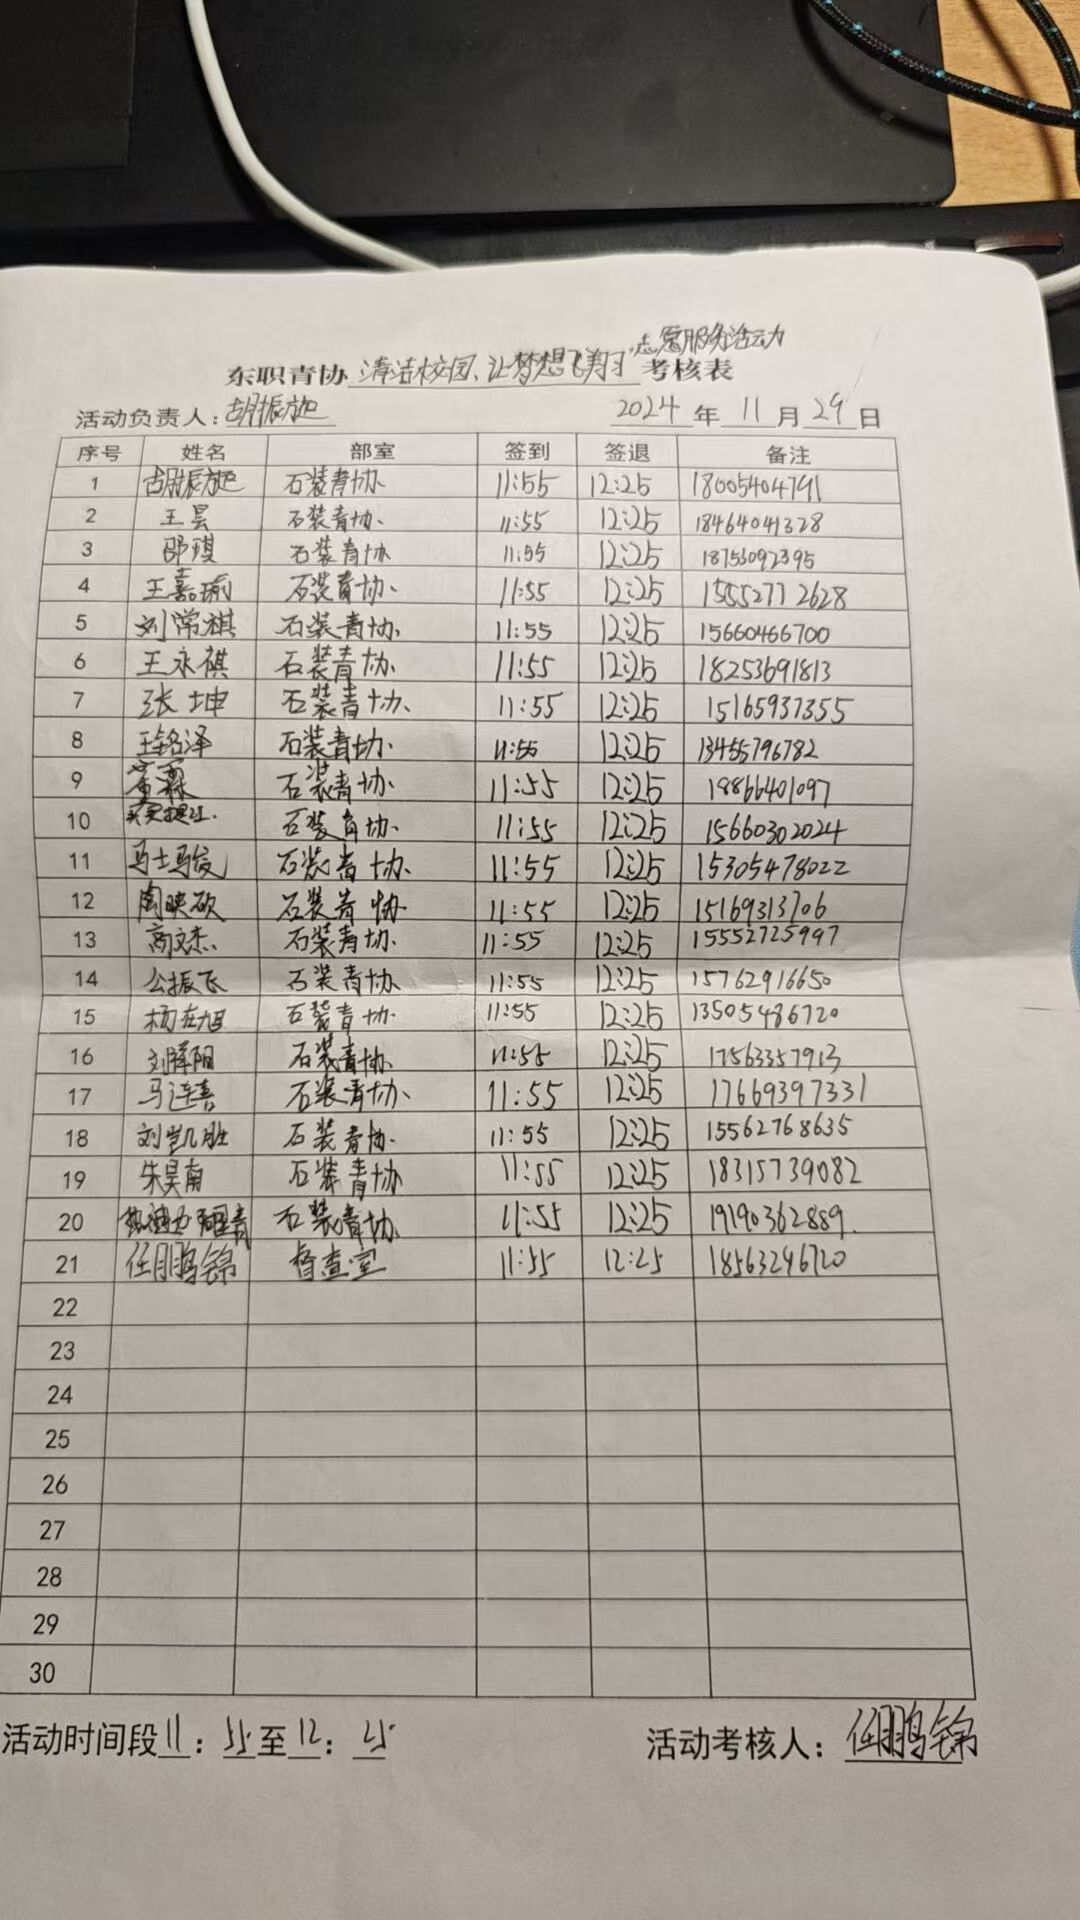 志愿服务活动
东职青协 清洁校园、让梦想飞翔 考核表
活动负责人: 胡振旎 2024 年 11 月 29 日
序号 姓名 部室 签到 签退 备注
1 胡振旎 石装青协 11:55 12:25 18005404791
2 王昙 石装青协 11:55 12:25 18464041328
3 邵琪 石装青协 11:55 12:25 18753092395
4 王嘉瑜 石装青协 11:55 12:25 15552772628
5 刘常祺 石装青协 11:55 12:25 15660466700
6 王永祺 石装青协 11:55 12:25 18253691813
7 张坤 石装青协 11:55 12:25 15165937355
8 王铭泽 石装青协 11:55 12:25 13455796782
9 石装青协 11:55 12:25 19866401097
10 石装青协 11:55 12:25 15660302024
11 马士骏 石装青协 11:55 12:25 15305478022
12 周映砍 石装青协 11:55 12:25 15169313706
13 高文杰 石装青协 11:55 12:25 15552725997
14 公振飞 石装青协 11:55 12:25 15762916650
15 杨在旭 石装青协 11:55 12:25 13505486720
16 刘泽阳 石装青协 11:55 12:25 17563357913
17 马连喜 石装青协 11:55 12:25 17669397331
18 刘凯胜 石装青协 11:55 12:25 15562768635
19 朱昊南 石装青协 11:55 12:25 18315739082
20 石装青协 11:55 12:25 19190362889
21 任鹏锦 督查室 11:55 12:25 18563246720
22
23
24
25
26
27
28
29
30
活动时间段 11 : 55 至 12 : 25 活动考核人: 任鹏锦